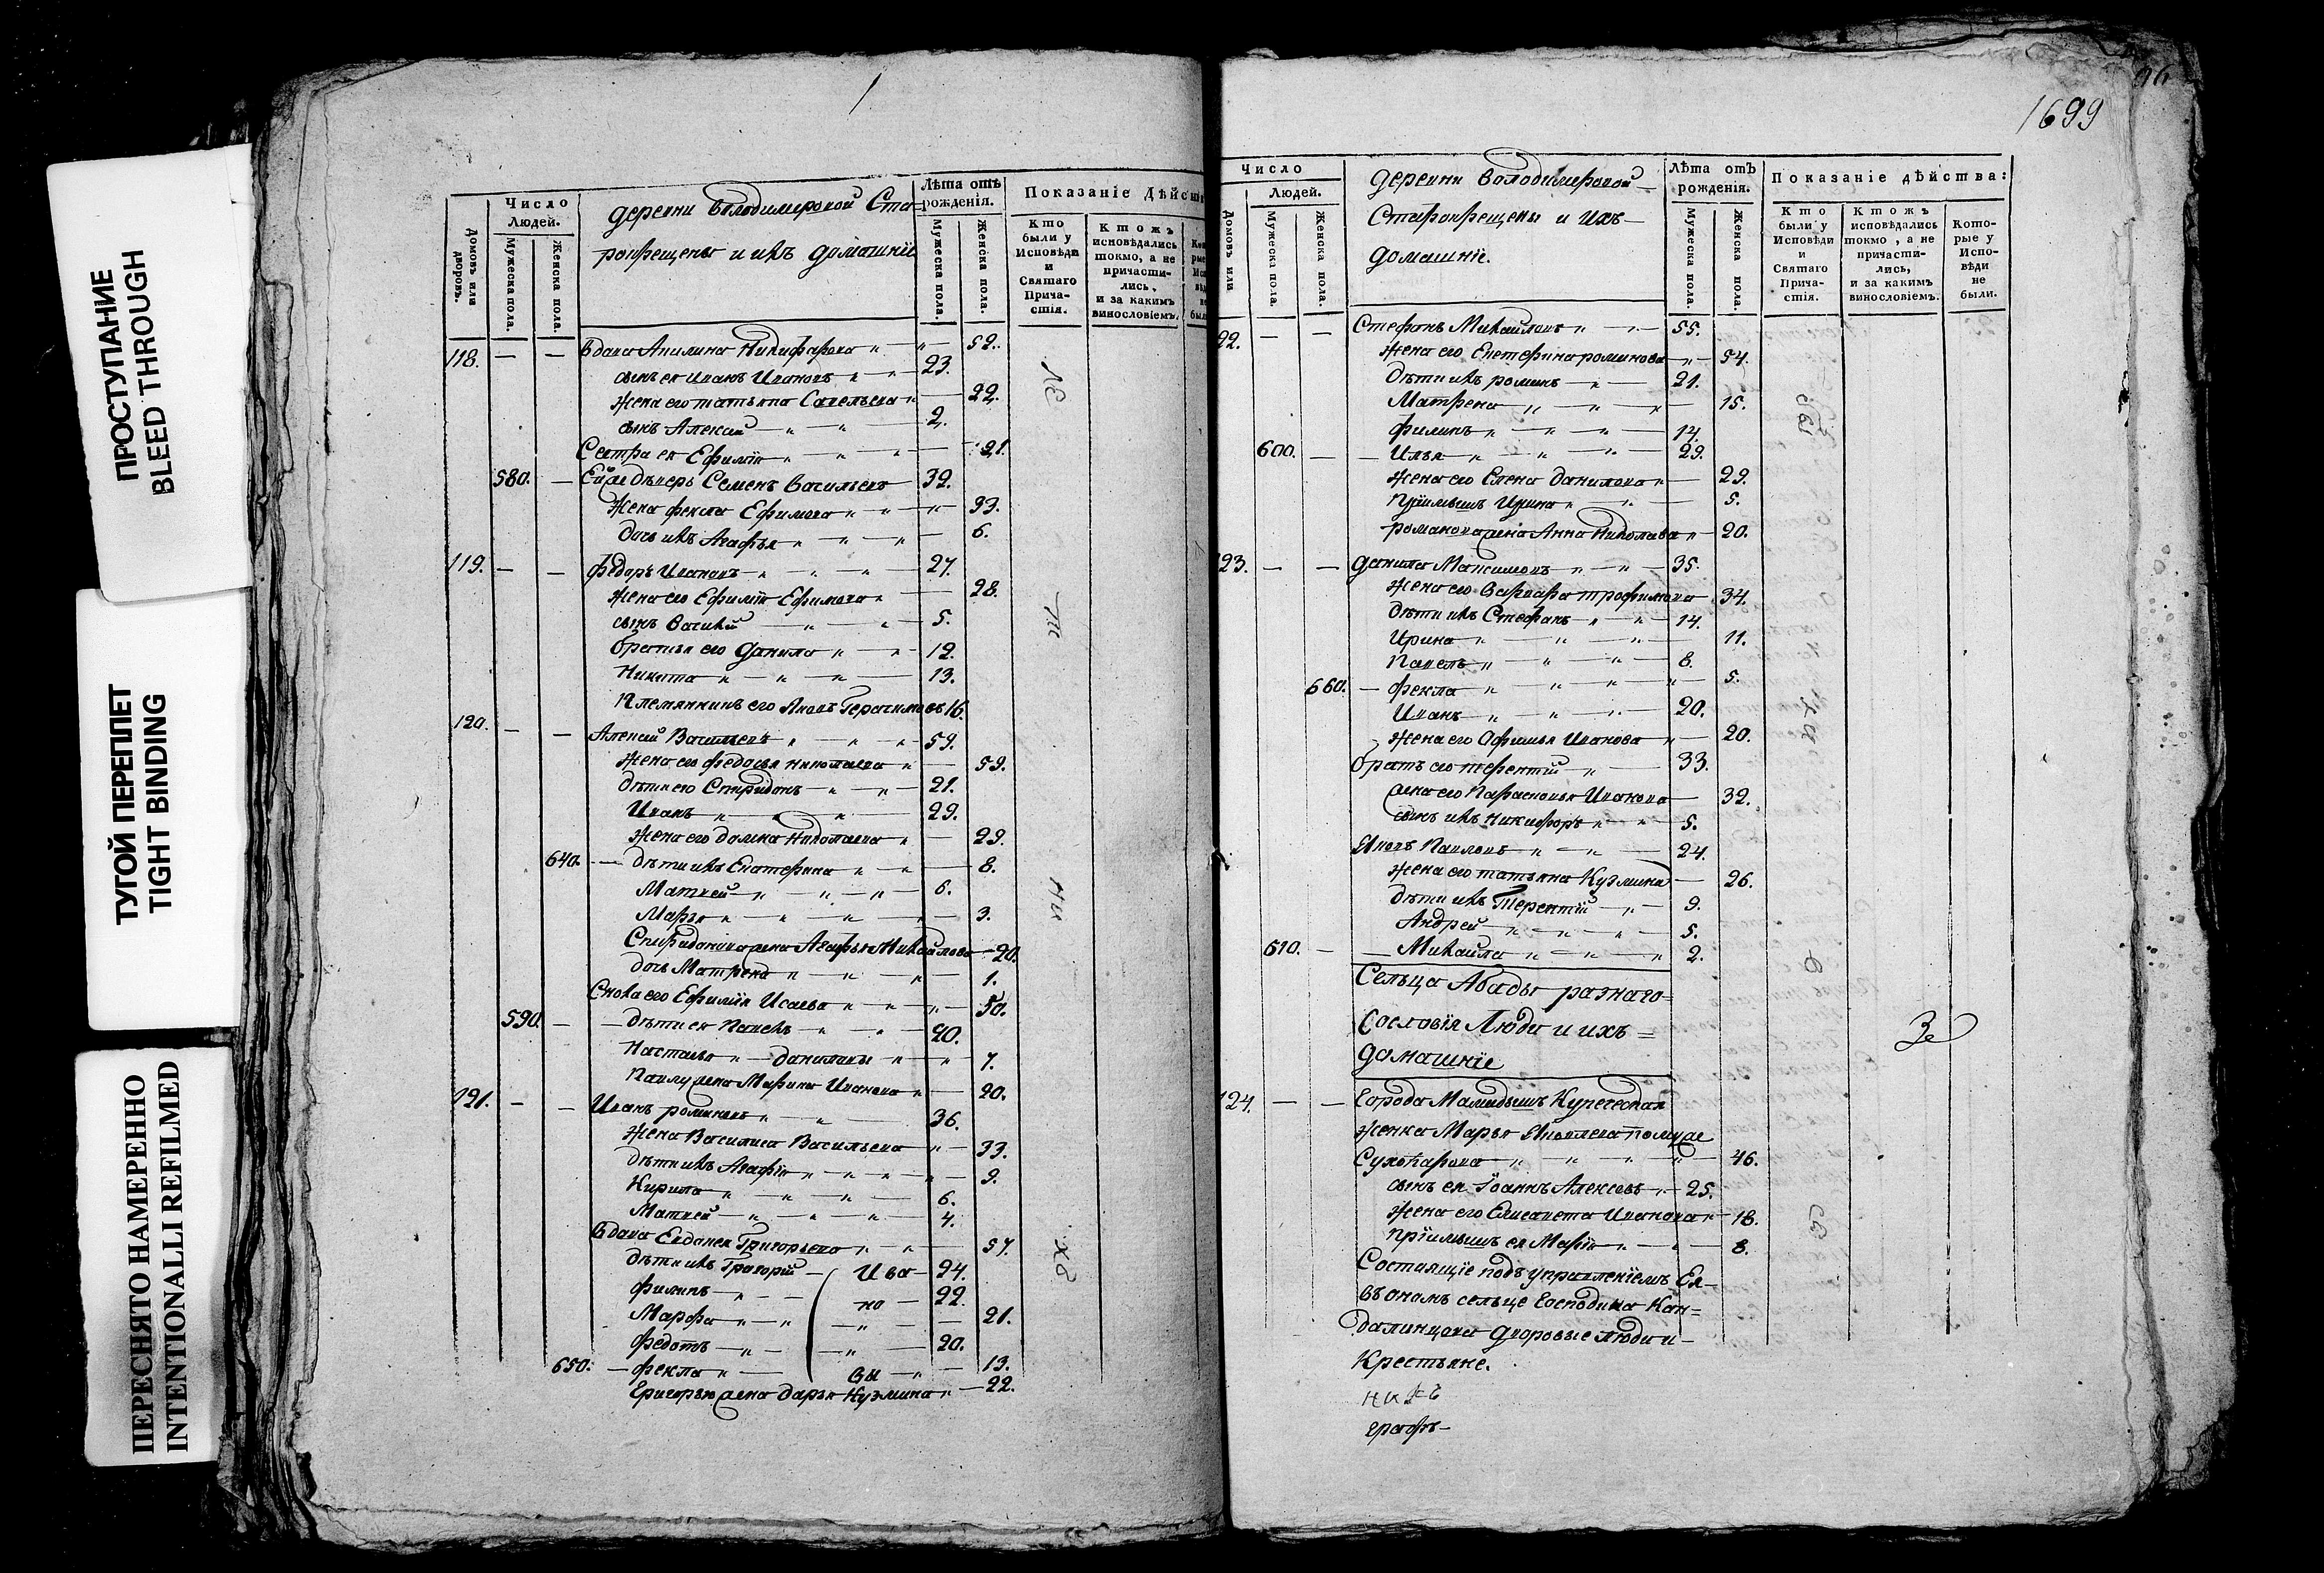 ПРОСТУПАНИЕ
BLEED THROUGH
ТУГОЙ ПЕРЕПЛЕТ
TIGHT BINDING
ПЕРЕСНЯТО НАМЕРЕННО
INTENTIONALLI REFILMED
Число
Людей.
Домовъ или дворовъ.
Мужеска пола.
Женска пола.
деревни Володимеровой Ста-
рокрещены и ихъ домашнїе
Лѣта отъ рожденія.
Мужеска пола.
Женска пола.
Показаніе Дѣйст
Кто были у Исповѣди и Святаго Прича-стія.
Ктожъ исповѣдались токмо, а не причасти-лись, и за какимъ винословіемъ.
118. — — Вдова Акилина Никифарова — 52.
сынъ ея Иванъ Ивановъ — 23.
жена его татьяна Савельева — 22.
сынъ Алексей — 2.
Сестра ея Ефимїя — 21.
580. — Ей деверь Семенъ Васильевъ 32.
Жена фекла Ефимова — 33.
дочь ихъ Агафья — 6.
119. — — федоръ Ивановъ — 27.
жена его Ефимїя Ефимова — 28.
сынъ Василїй — 5.
братья его Данило — 12.
Никита — 13.
Племянникъ его Яковъ Герасимовъ 16.
120. — — Алексей Васильевъ — 59.
жена его федосья николаева — 59.
дѣти его Спиридонъ — 21.
Иванъ — 29.
жена его домна Николаева — 29.
640. — дѣти ихъ Екатерина — 8.
Матвей — 6.
Марья — 3.
Спиридонова жена Агафья Михайлова — 20.
дочь Матрена — 1.
Сноха его Ефимїя Исаева — 50.
590. — дѣти ея Павелъ — 20.
Настасья — даниловы — 7.
Павлу жена Марина Иванова — 20.
121. — — Иванъ романовъ — 36.
Жена Василиса Васильева — 33.
дѣти ихъ Агафїя — 9.
Кирила — 6.
Матвей — 4.
Вдова Евдокея Григорьева — 57.
дѣти ихъ Григорїй — Ива — 24.
филипъ — но — 22.
Марфа — 21.
федотъ — 20.
650. — фекла — вы — 13.
Григорью жена дарья Кузмина — 22.
1699
Число
Людей.
Домовъ или
Мужеска пола.
Женска пола.
деревни Володимеровой
Старокрещены и ихъ
домашнїе.
Лѣта отъ рожденія.
Мужеска пола.
Женска пола.
Показаніе дѣйства:
Кто были у Исповѣди и Святаго Прича-стія.
Ктожъ исповѣдались токмо, а не причасти-лись, и за какимъ винословіемъ.
Кото-рые у Испо-вѣди не были.
22. — — Стефанъ Михайловъ — 55.
Жена его Екатерина романова — 54.
дѣти ихъ романъ — 21.
Матрена — 15.
филипъ — 14.
600. — Илья — 29.
жена его Елена данилова — 29.
Прїимышъ Ирина — 5.
романова жена Анна Николаева — 20.
23. — — данила Максимовъ — 35.
жена его Варвара трофимова 34.
дѣти ихъ Стефанъ — 14.
Ирина — 11.
Павелъ — 8.
660. — фекла — 5.
Иванъ — 20.
жена его Офимья Иванова — 20.
братъ его терентїй — 33.
жена его Парасковья Иванова — 32.
сынъ ихъ Никифоръ — 5.
Яковъ Павловъ — 24.
жена его татьяна Кузмина — 26.
дѣти ихъ Терентїй — 9.
Андрей — 5.
610. — Михайла — 2.
Сельца Абады разнаго
Сословїя Люди и ихъ
домашнїе
124. — — Города Мамадышъ Купеческая
женка Марья Яковлева по мужѣ
Сухопарова — 46.
сынъ ея Іоаннъ Алексеевъ — 25.
жена его Елисавета Иванова — 18.
прїимышъ ея Марїя — 8.
Состоящїе подъ управленїемъ Ея
въ ономъ сельце Господина Кан=
далинцова дворовые люди и
Крестьяне.